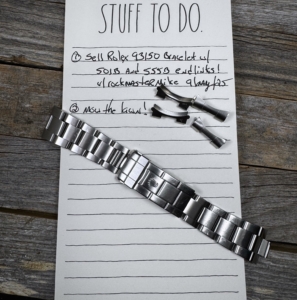 STUFF TO DO.
① Sell Rolex 93150 Bracelet w/
501B And 555B endlinks!
u/rockmasterMike 9/May/25
② mow the lawn!